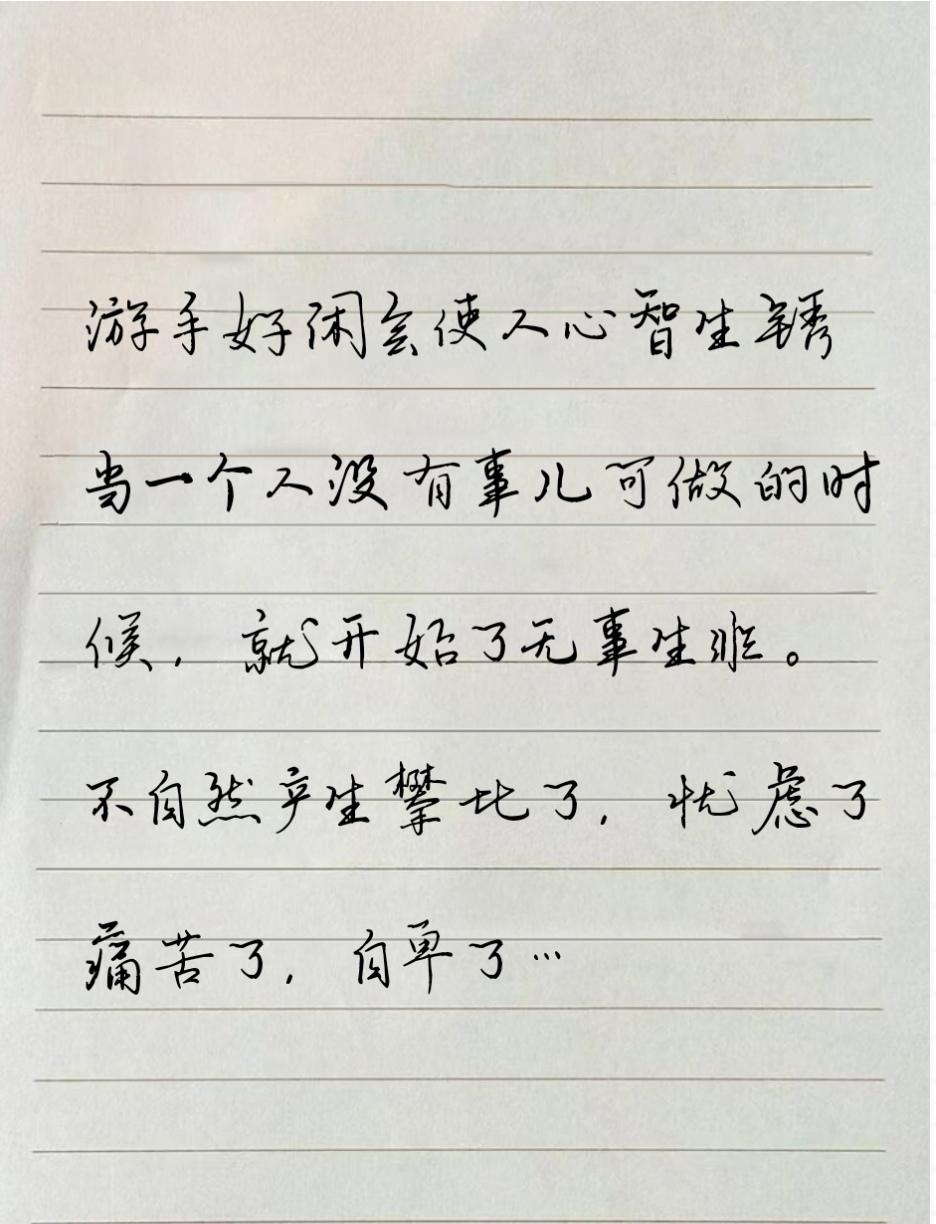 游手好闲会使人心智生锈
当一个人没有事儿可做的时
候，就开始了无事生非。
不自然产生攀比了，忧虑了
痛苦了，自卑了…